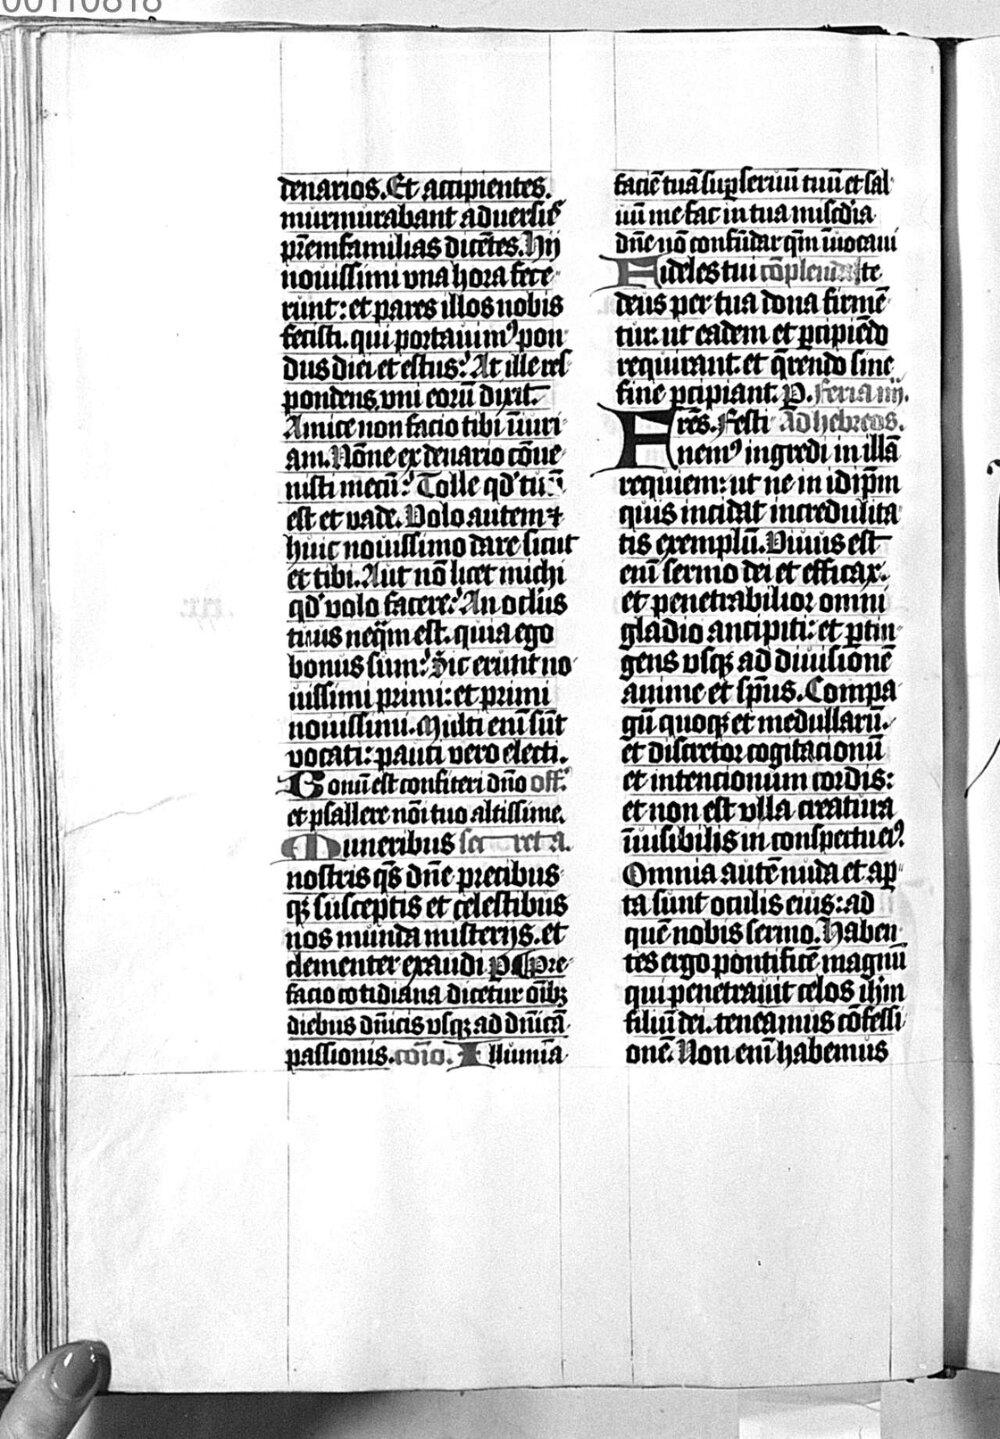 00110818
denarios. Et accipientes
murmurabant aduersus
pr̄emfamilias dicētes. Hij
nouissimi vna hora fece-
runt: et pares illos nobis
fecisti. qui portauimꝰ pon-
dus diei et estus? At ille res-
pondens vni eorū dixit.
Amice non facio tibi iniuri-
am. Nōne ex denario cōue-
nisti mecū? Tolle qd' tuū
est et vade. Volo autem ⁊
huic nouissimo dare sicut
et tibi. Aut nō licet michi
qd' volo facere? An oclūs
tuus neq̄m est. quia ego
bonus sum? Sic erunt no-
uissimi primi: et primi
nouissimi. Multi enī sūt
vocati: pauci vero electi.
Bonū est confiteri dn̄o off.
et psallere nōi tuo altissime.
Muneribus secreta.
nostris q̄s dn̄e precibus-
qꝫ susceptis et celestibus
nos munda misterijs. et
clementer exaudi p ¶ Pre-
facio cotidiana dicetur oībꝫ
diebus dn̄icis vsqꝫ ad dn̄icā
passionis. cōio. Illumīa
faciē tuā suꝑ seruū tuū et sal-
uū me fac in tua mīscdia
dn̄e nō confūdar qm̄ īuocaui
Fideles tui cōplenda te
deus per tua dona firmē-
tur. ut eadem et ꝑcipiēdo
requirant. et q̄rendo sine
fine ꝑcipiant. P. Feria iiij.
Frēs. Festi- Ad hebreos.
nemꝰ ingredi in illā
requiem: ut ne in idip̄m
quis incidat incredulita-
tis exemplū. Viuus est
enī sermo dei et efficax.
et penetrabilior omni
gladio ancipiti: et ꝑtin-
gens vsqꝫ ad diuisionē
anime et sp̄us. Compa-
gū quoqꝫ et medullarū.
et discretor cogitacionū
et intencionum cordis:
et non est vlla creatura
īuisibilis in conspectu eiꝰ.
Omnia autē nuda et ap-
ta sunt oculis eius: ad
quē nobis sermo. Haben-
tes ergo pontificē magnū
qui penetrauit celos ih̄m
filiū dei. teneamus cōfessi-
onē. Non enī habemus